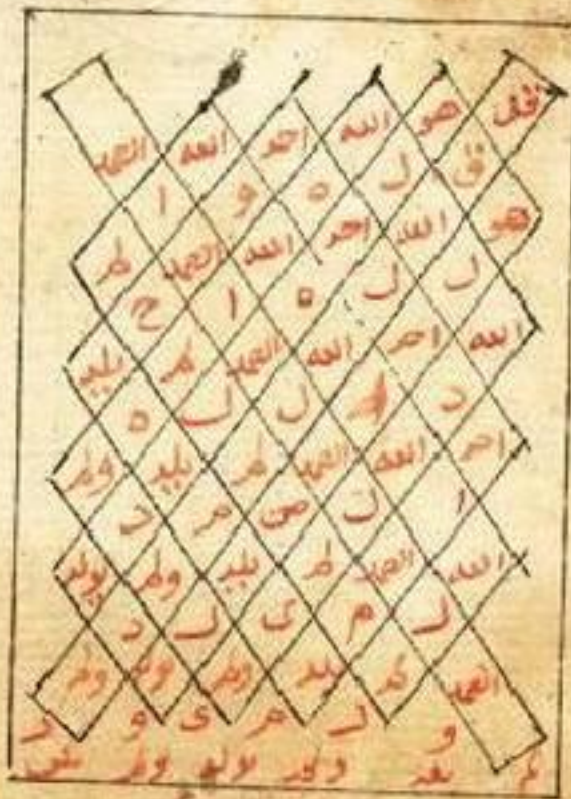 قل هو الله احد الله الصمد
ق ل ه و ا
هو الله احد الله الصمد لم
ل ل ه ا ح
الله احد الله الصمد لم يلد
د ل ل ه
احد الله الصمد لم يلد ولم
ا ل ص م د
الله الصمد لم يلد ولم يولد
ل م ى ل د
الصمد لم يلد ولم يولد ولم
و ل م ى و ل
لم يولد ولم